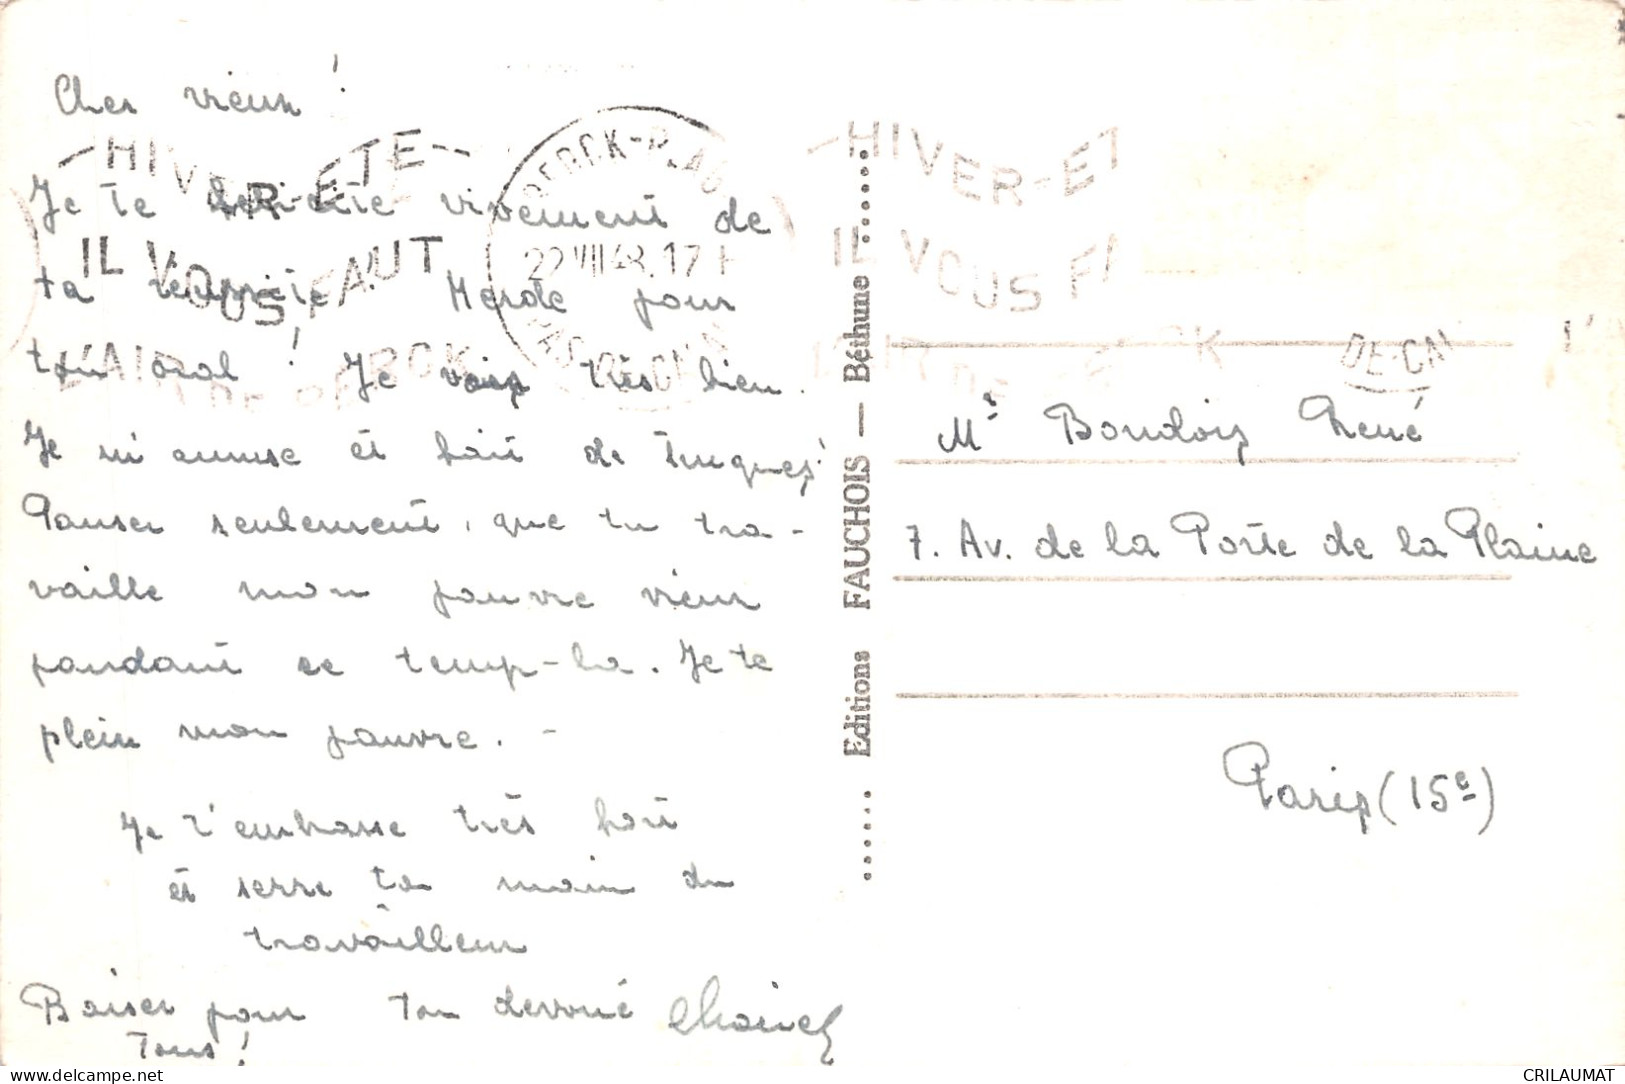 Cher vieux !
Je te félicite vivement de
ta réussite ! Merde pour
ton oral ! Je vais très bien.
Je m'amuse et fait de
Panser seulement, que tu tra-
vaille mon pauvre vieux
pandant ce temp-la. Je te
plein mon pauvre. -
Je t'embrasse très fort
et serre ta main du
travailleur
Baiser pour ton devoué
Tous !
HIVER-ETE
IL VOUS FAUT
L'AIR DE BERCK
BERCK-PLAGE
22 VII 48. 17 H
PAS-DE-CALAIS
HIVER-ET
IL VOUS FA
L'AIR DE BERCK
DE-CAL
L'A
Editions FAUCHOIS — Béthune
Mr Boudois René
7. Av. de la Porte de la Plaine
Paris (15e)
CRILAUMAT